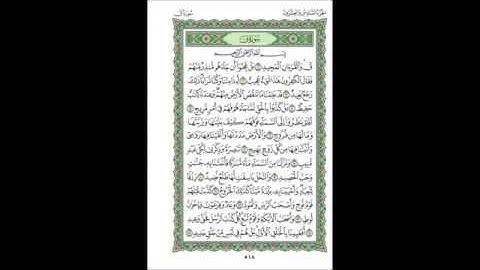 الجزء السادس والعشرون
سورة ق
سورة ق
بسم الله الرحمن الرحيم
ق والقرءان المجيد ١ بل عجبوا أن جاءهم منذر منهم
فقال الكفرون هذا شىء عجيب ٢ أءذا متنا وكنا ترابا ذلك
رجع بعيد ٣ قد علمنا ما تنقص الأرض منهم وعندنا كتب
حفيظ ٤ بل كذبوا بالحق لما جاءهم فهم فى أمر مريج ٥
أفلم ينظروا إلى السماء فوقهم كيف بنينها وزينها
وما لها من فروج ٦ والأرض مددنها وألقينا فيها روسى
وأنبتنا فيها من كل زوج بهيج ٧ تبصرة وذكرى لكل عبد
منيب ٨ ونزلنا من السماء ماء مبركا فأنبتنا به جنت
وحب الحصيد ٩ والنخل باسقت لها طلع نضيد ١٠ رزقا
للعباد وأحيينا به بلدة ميتا كذلك الخروج ١١ كذبت قبلهم
قوم نوح وأصحب الرس وثمود ١٢ وعاد وفرعون وإخون
لوط ١٣ وأصحب الأيكة وقوم تبع كل كذب الرسل فحق وعيد ١٤
أفعيينا بالخلق الأول بل هم فى لبس من خلق جديد ١٥
٥١٨